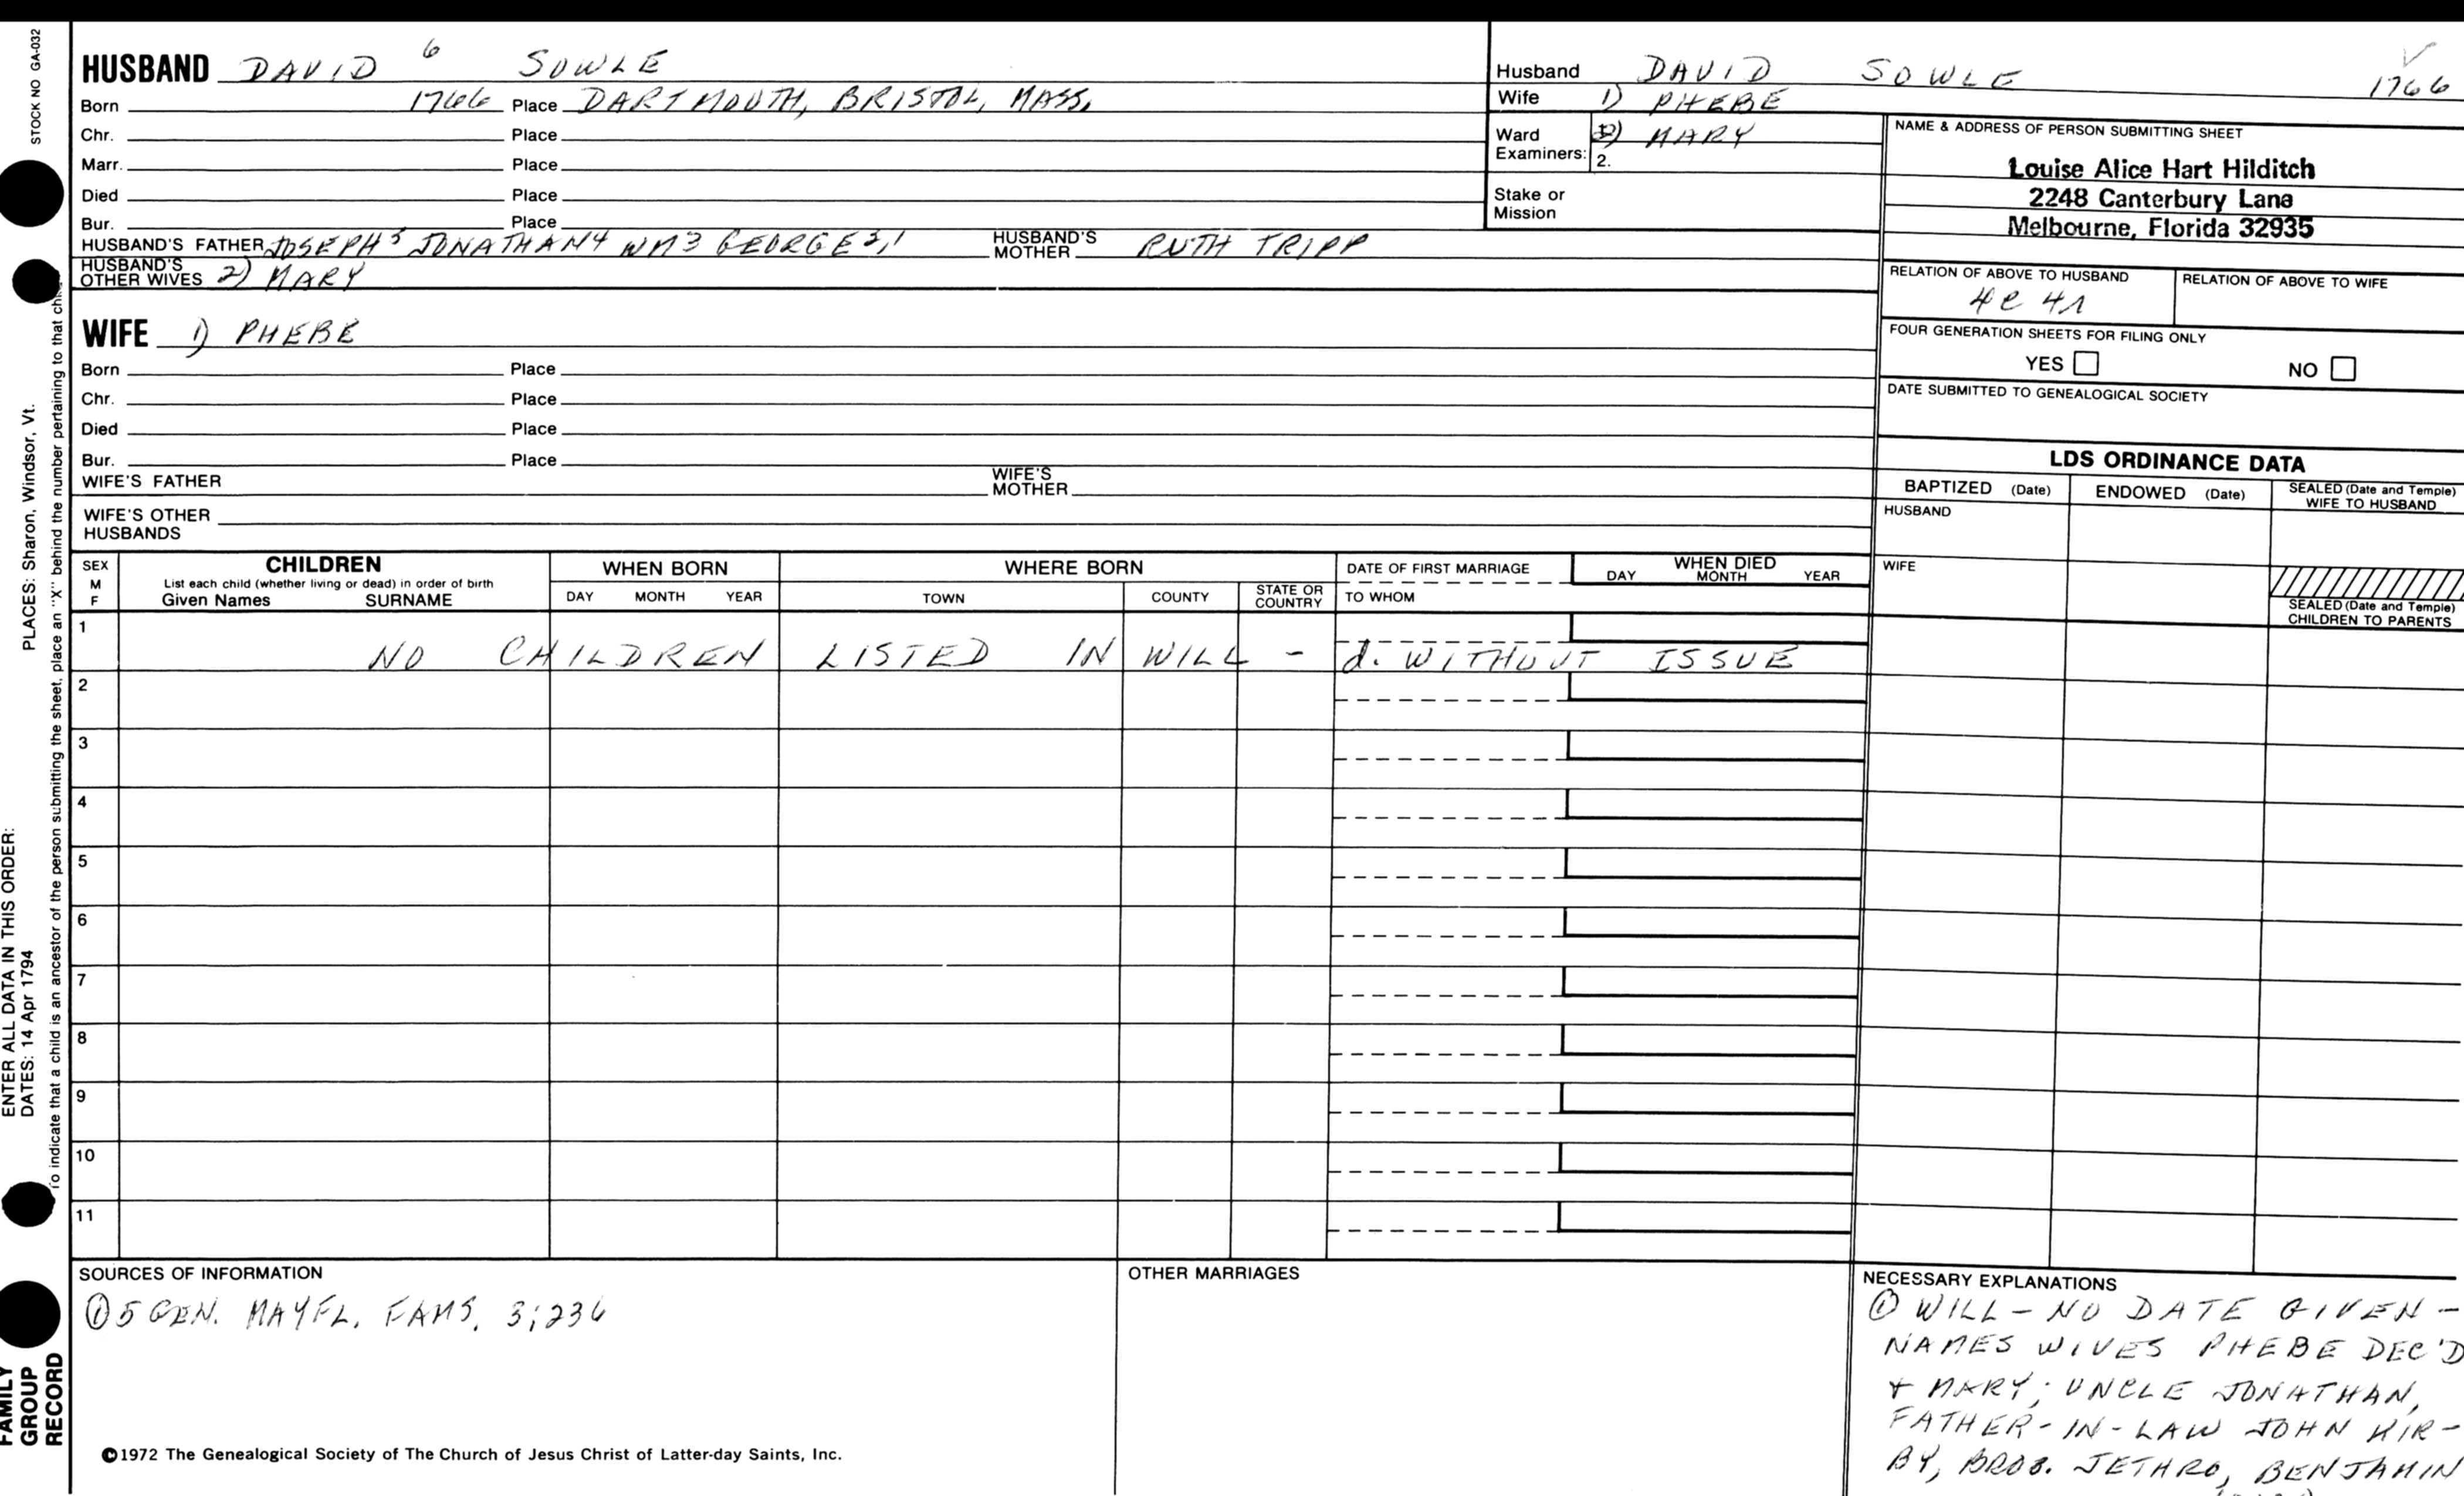 STOCK NO GA-032
PLACES: Sharon, Windsor, Vt.
ENTER ALL DATA IN THIS ORDER:
DATES: 14 Apr 1794
To indicate that a child is an ancestor of the person submitting the sheet, place an "X" behind the number pertaining to that chi
FAMILY
GROUP
RECORD
HUSBAND DAVID 6 SOWLE
Born 1766 Place DARTMOUTH, BRISTOL, MASS.
Chr. Place
Marr. Place
Died Place
Bur. Place
HUSBAND'S FATHER JOSEPH5 JONATHAN4 WM3 GEORGE2,1 HUSBAND'S MOTHER RUTH TRIPP
HUSBAND'S OTHER WIVES 2) MARY
WIFE 1) PHEBE
Born Place
Chr. Place
Died Place
Bur. Place
WIFE'S FATHER WIFE'S MOTHER
WIFE'S OTHER HUSBANDS
Husband DAVID SOWLE 1766
Wife 1) PHEBE
Ward Examiners: 2) MARY
2.
Stake or Mission
NAME & ADDRESS OF PERSON SUBMITTING SHEET
Louise Alice Hart Hilditch
2248 Canterbury Lane
Melbourne, Florida 32935
RELATION OF ABOVE TO HUSBAND RELATION OF ABOVE TO WIFE
4c 4r
FOUR GENERATION SHEETS FOR FILING ONLY
YES NO
DATE SUBMITTED TO GENEALOGICAL SOCIETY
LDS ORDINANCE DATA
BAPTIZED (Date) ENDOWED (Date) SEALED (Date and Temple) WIFE TO HUSBAND
HUSBAND
WIFE
SEALED (Date and Temple) CHILDREN TO PARENTS
SEX M F
CHILDREN
List each child (whether living or dead) in order of birth
Given Names SURNAME
WHEN BORN
DAY MONTH YEAR
WHERE BORN
TOWN COUNTY STATE OR COUNTRY
DATE OF FIRST MARRIAGE
TO WHOM
WHEN DIED
DAY MONTH YEAR
1
NO CHILDREN LISTED IN WILL - d. WITHOUT ISSUE
2
3
4
5
6
7
8
9
10
11
SOURCES OF INFORMATION
① 5 GEN. MAYFL. FAMS. 3;236
OTHER MARRIAGES
NECESSARY EXPLANATIONS
① WILL - NO DATE GIVEN -
NAMES WIVES PHEBE DEC'D
+ MARY; UNCLE JONATHAN,
FATHER-IN-LAW JOHN KIR-
BY, BROS. JETHRO, BENJAMIN
©1972 The Genealogical Society of The Church of Jesus Christ of Latter-day Saints, Inc.